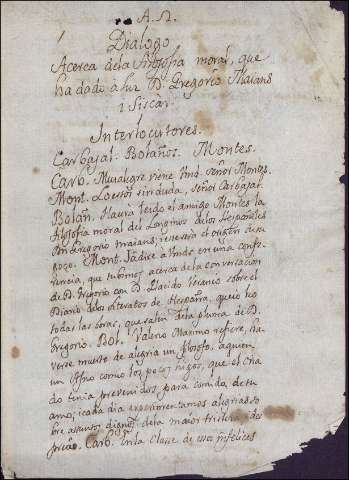 A. Ω.
Dialogo
Acerca dela Filosofia moral, que
ha dado à luz D. Gregorio Maians
i Siscar.
Interlocutores.
Carbajal. Bolaños. Montes.
Carb. Mui alegre viene Vmd. señor Montes.
Mont. Lo estoi sin duda, señor Carbajal.
Bolañ. Havrà leido el amigo Montes la
Filosofia moral del Longinos delos Españoles
Don Gregorio Maians; i esserà el origen de su
gozo. Mont. Ya dixe a Vmds en una confe-
rencia, que tubimos acerca dela conversacion
de D. Gregorio con D. Placido Veranio sobre el
Diario delos Literatos de España, que io leo
todas las obras, que salen dela pluma de D.
Gregorio. Bol. Valerio Maximo refiere, ha-
verse muerto de alegria un Filosofo, a quien
un asno comio los pocos higos, que el cria-
do tenia prevenidos para comida de su
amo; i cada dia experimentamos alegrias so-
bre assuntos dignos dela maior tristeza, i des-
precio. Carb. En la Classe de essos infelices